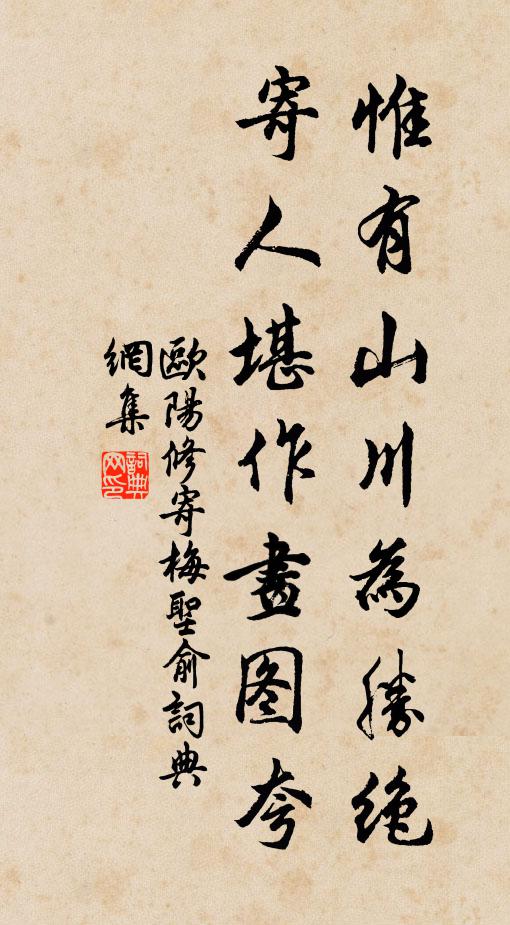 惟有山川為勝絶
寄人堪作畫图夸
歐陽修寄梅聖俞詞典
網集
詞典網印